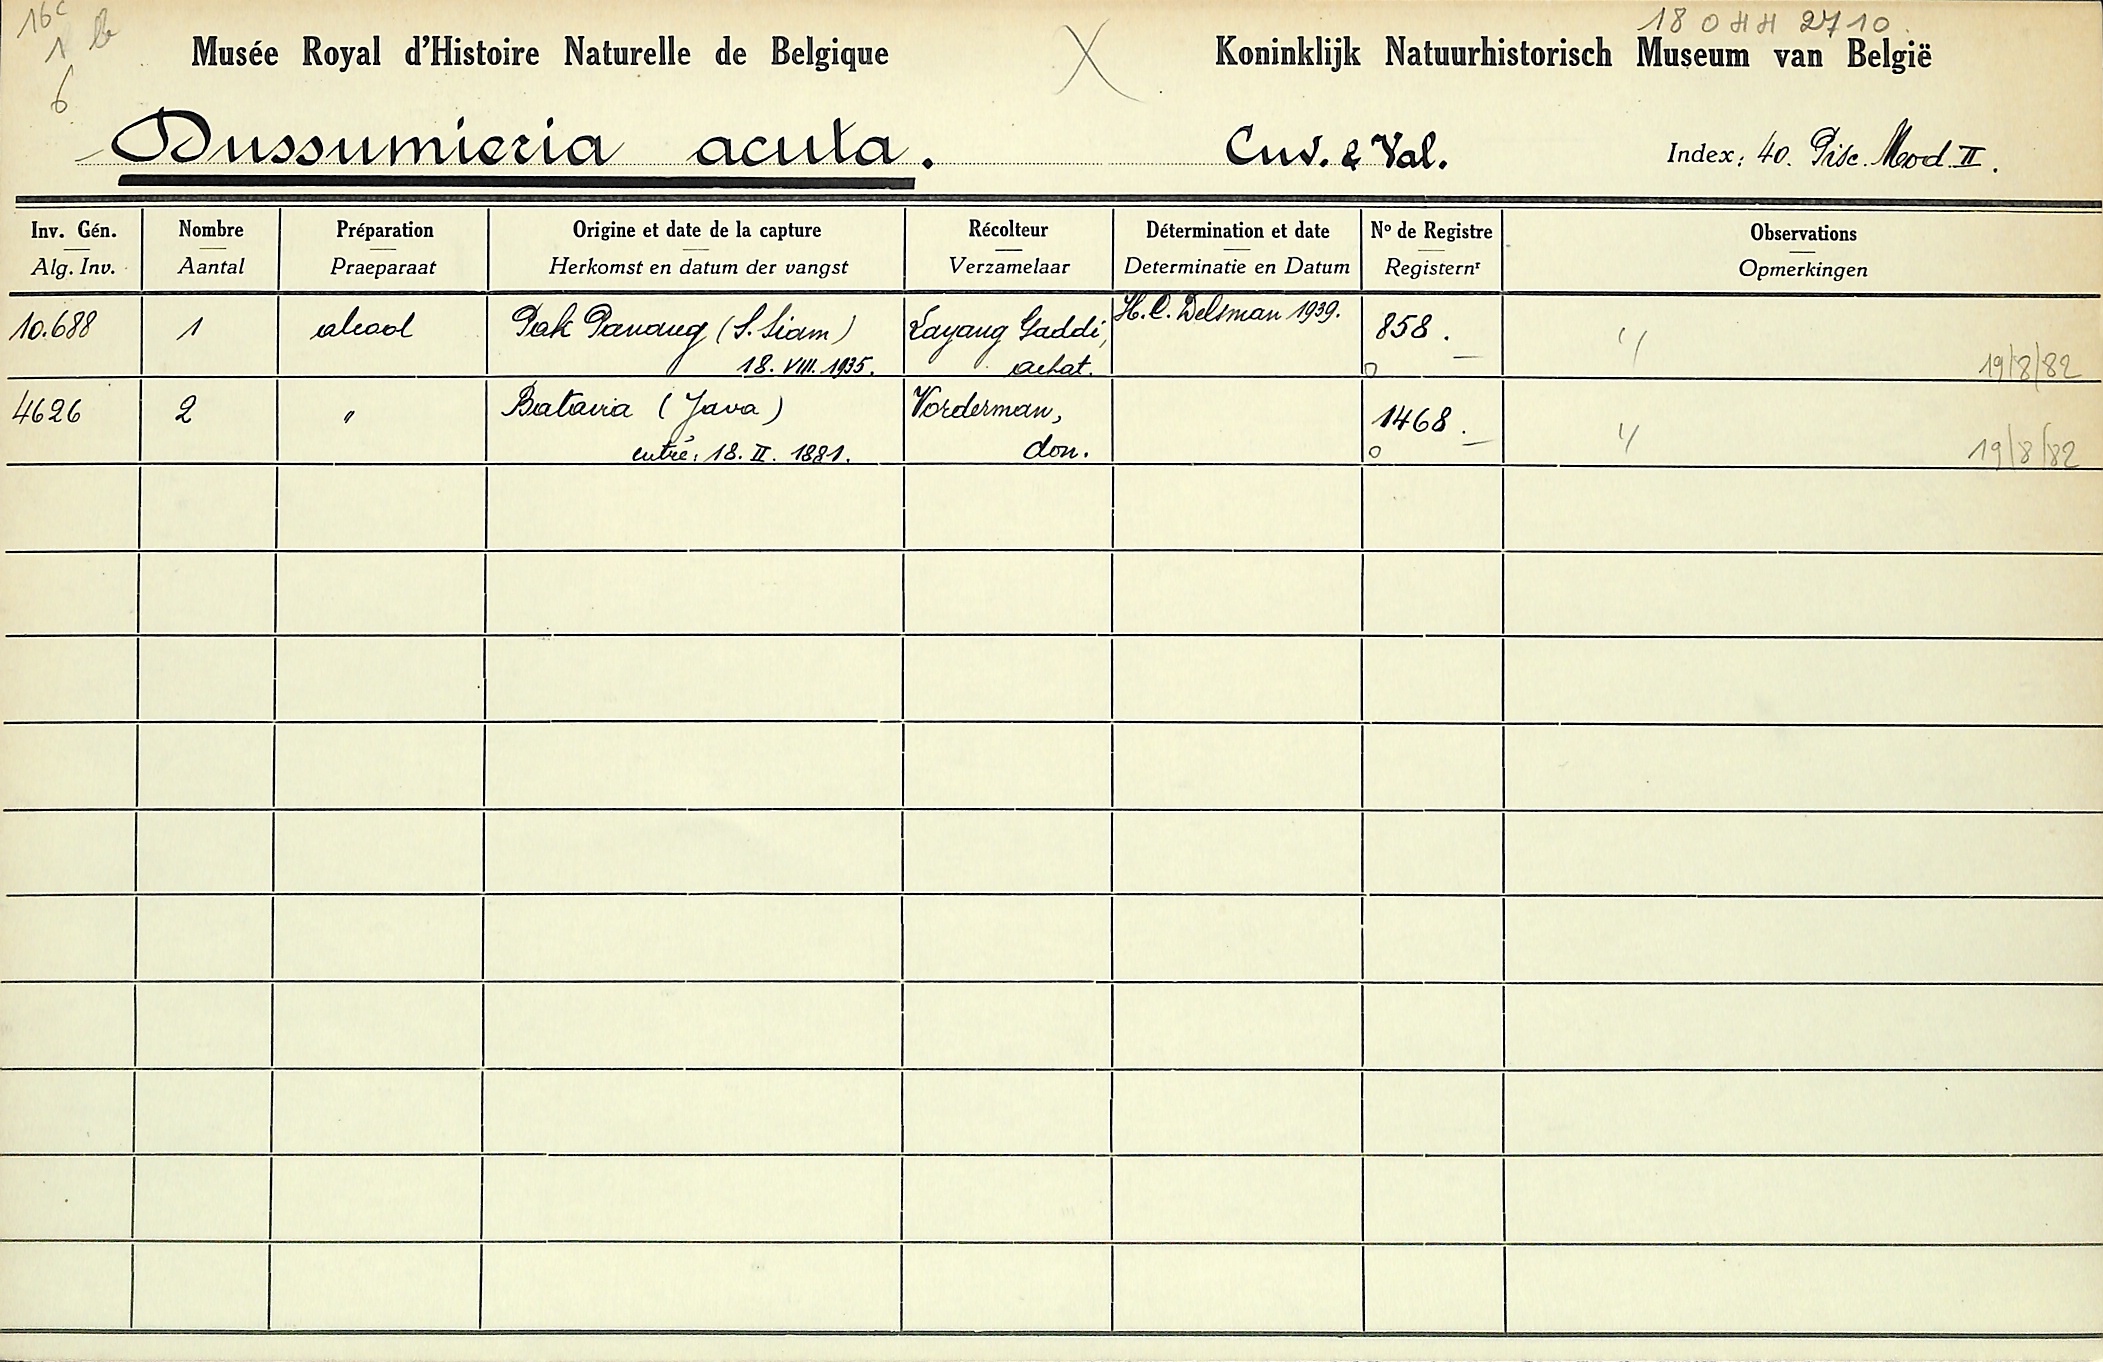 16c
1 b
6
18 0 HH 2710.
Musée Royal d'Histoire Naturelle de Belgique
X
Koninklijk Natuurhistorisch Museum van België
Dussumieria acuta.
Cuv. & Val.
Index: 40. Pisc. Mood. II.
Inv. Gén.
Alg. Inv.
Nombre
Aantal
Préparation
Praeparaat
Origine et date de la capture
Herkomst en datum der vangst
Récolteur
Verzamelaar
Détermination et date
Determinatie en Datum
No de Registre
Registernr
Observations
Opmerkingen
10.688
1
alcool
Pak Panang (S. Siam)
18. VIII. 1935.
Layang Gaddi,
achat.
H. C. Delsman 1939.
858.
19/8/82
4626
2
"
Batavia (Java)
entré: 18. II. 1881.
Vorderman,
don.
1468.
19/8/82